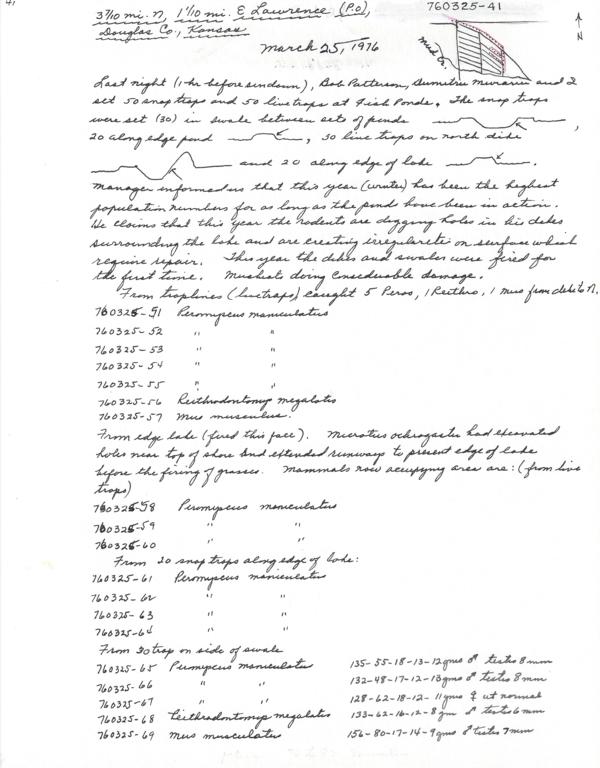 41
3 7/10 mi. N, 1 1/10 mi. E Lawrence (P.O.),
Douglas Co., Kansas
760325-41
N
Mud Cr.
March 25, 1976
Last night (1-hr before sundown), Bob Patterson, Dumitru Murariu and I
set 50 snap traps and 50 live traps at Fish Ponds. The snap traps
were set (30) in swale between sets of ponds ,
20 along edge pond , 30 live traps on north dike
and 20 along edge of lake .
Manager informed us that this year (winter) has been the highest
population numbers for as long as the pond have been in action.
He claims that this year the rodents are digging holes in his dikes
surrounding the lake and are creating irregularities on surface which
require repair. This year the dikes and swales were fired for
the first time. Muskrats doing considerable damage.
From traplines (live traps) caught 5 Peros, 1 Reithro, 1 Mus from dike to N.
760325-51 Peromyscus maniculatus
760325-52 " "
760325-53 " "
760325-54 " "
760325-55 " "
760325-56 Reithrodontomys megalotis
760325-57 Mus musculus.
From edge lake (fired this face). Microtus ochrogaster had excavated
holes near top of shore and extended runways to present edge of lake
before the firing of grasses. Mammals now occupying area are: (from live
traps)
760325-58 Peromyscus maniculatus
760325-59 " "
760325-60 " "
From 20 snap traps along edge of lake:
760325-61 Peromyscus maniculatus
760325-62 " "
760325-63 " "
760325-64 " "
From 30 trap on side of swale
760325-65 Peromyscus maniculatus 135-55-18-13-12gms ♂ testes 8mm
760325-66 " " 132-48-17-12-13gms ♂ testes 8mm
760325-67 " " 128-62-18-12-11gms ♀ ut normal
760325-68 Reithrodontomys megalotis 133-62-16-12-8gm ♂ testes 6mm
760325-69 Mus musculatus 156-80-17-14-9gms ♂ testes 7mm